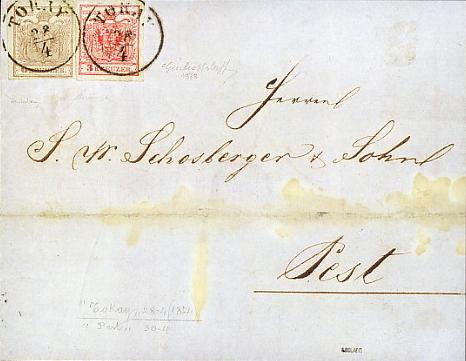 TOKAJ
28/4
TOKAJ
28/4
6 KREUZER
3 KREUZER
1878
Herren
S. W. Schosberger & Sohne
Pest
"Tokay" 28-4/1854
"Pest" 30-4